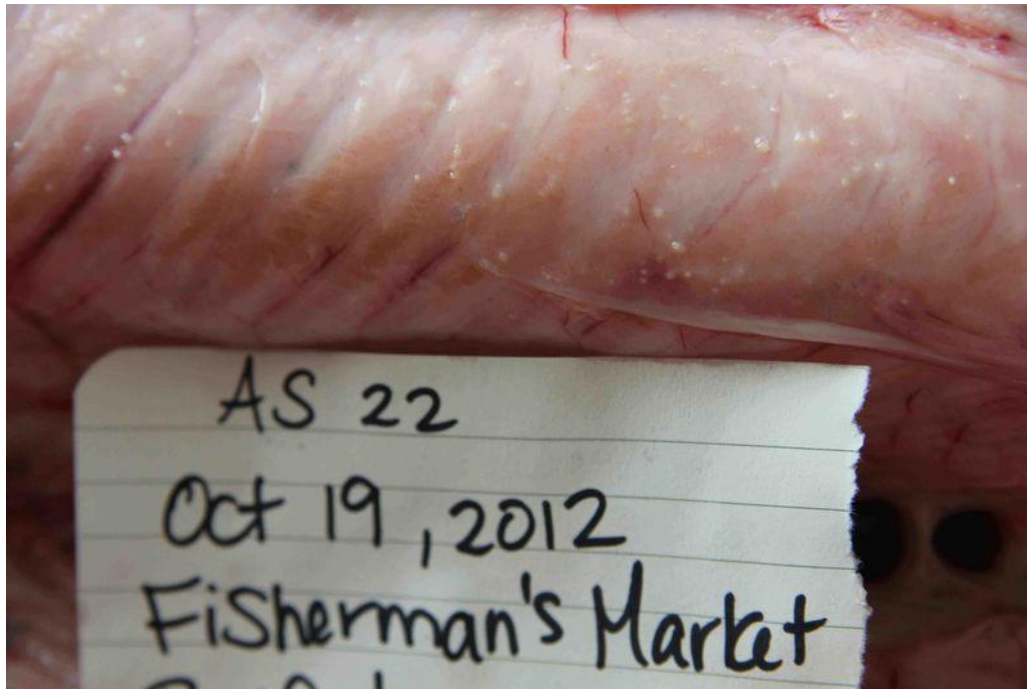 AS 22
Oct 19, 2012
Fisherman's Market